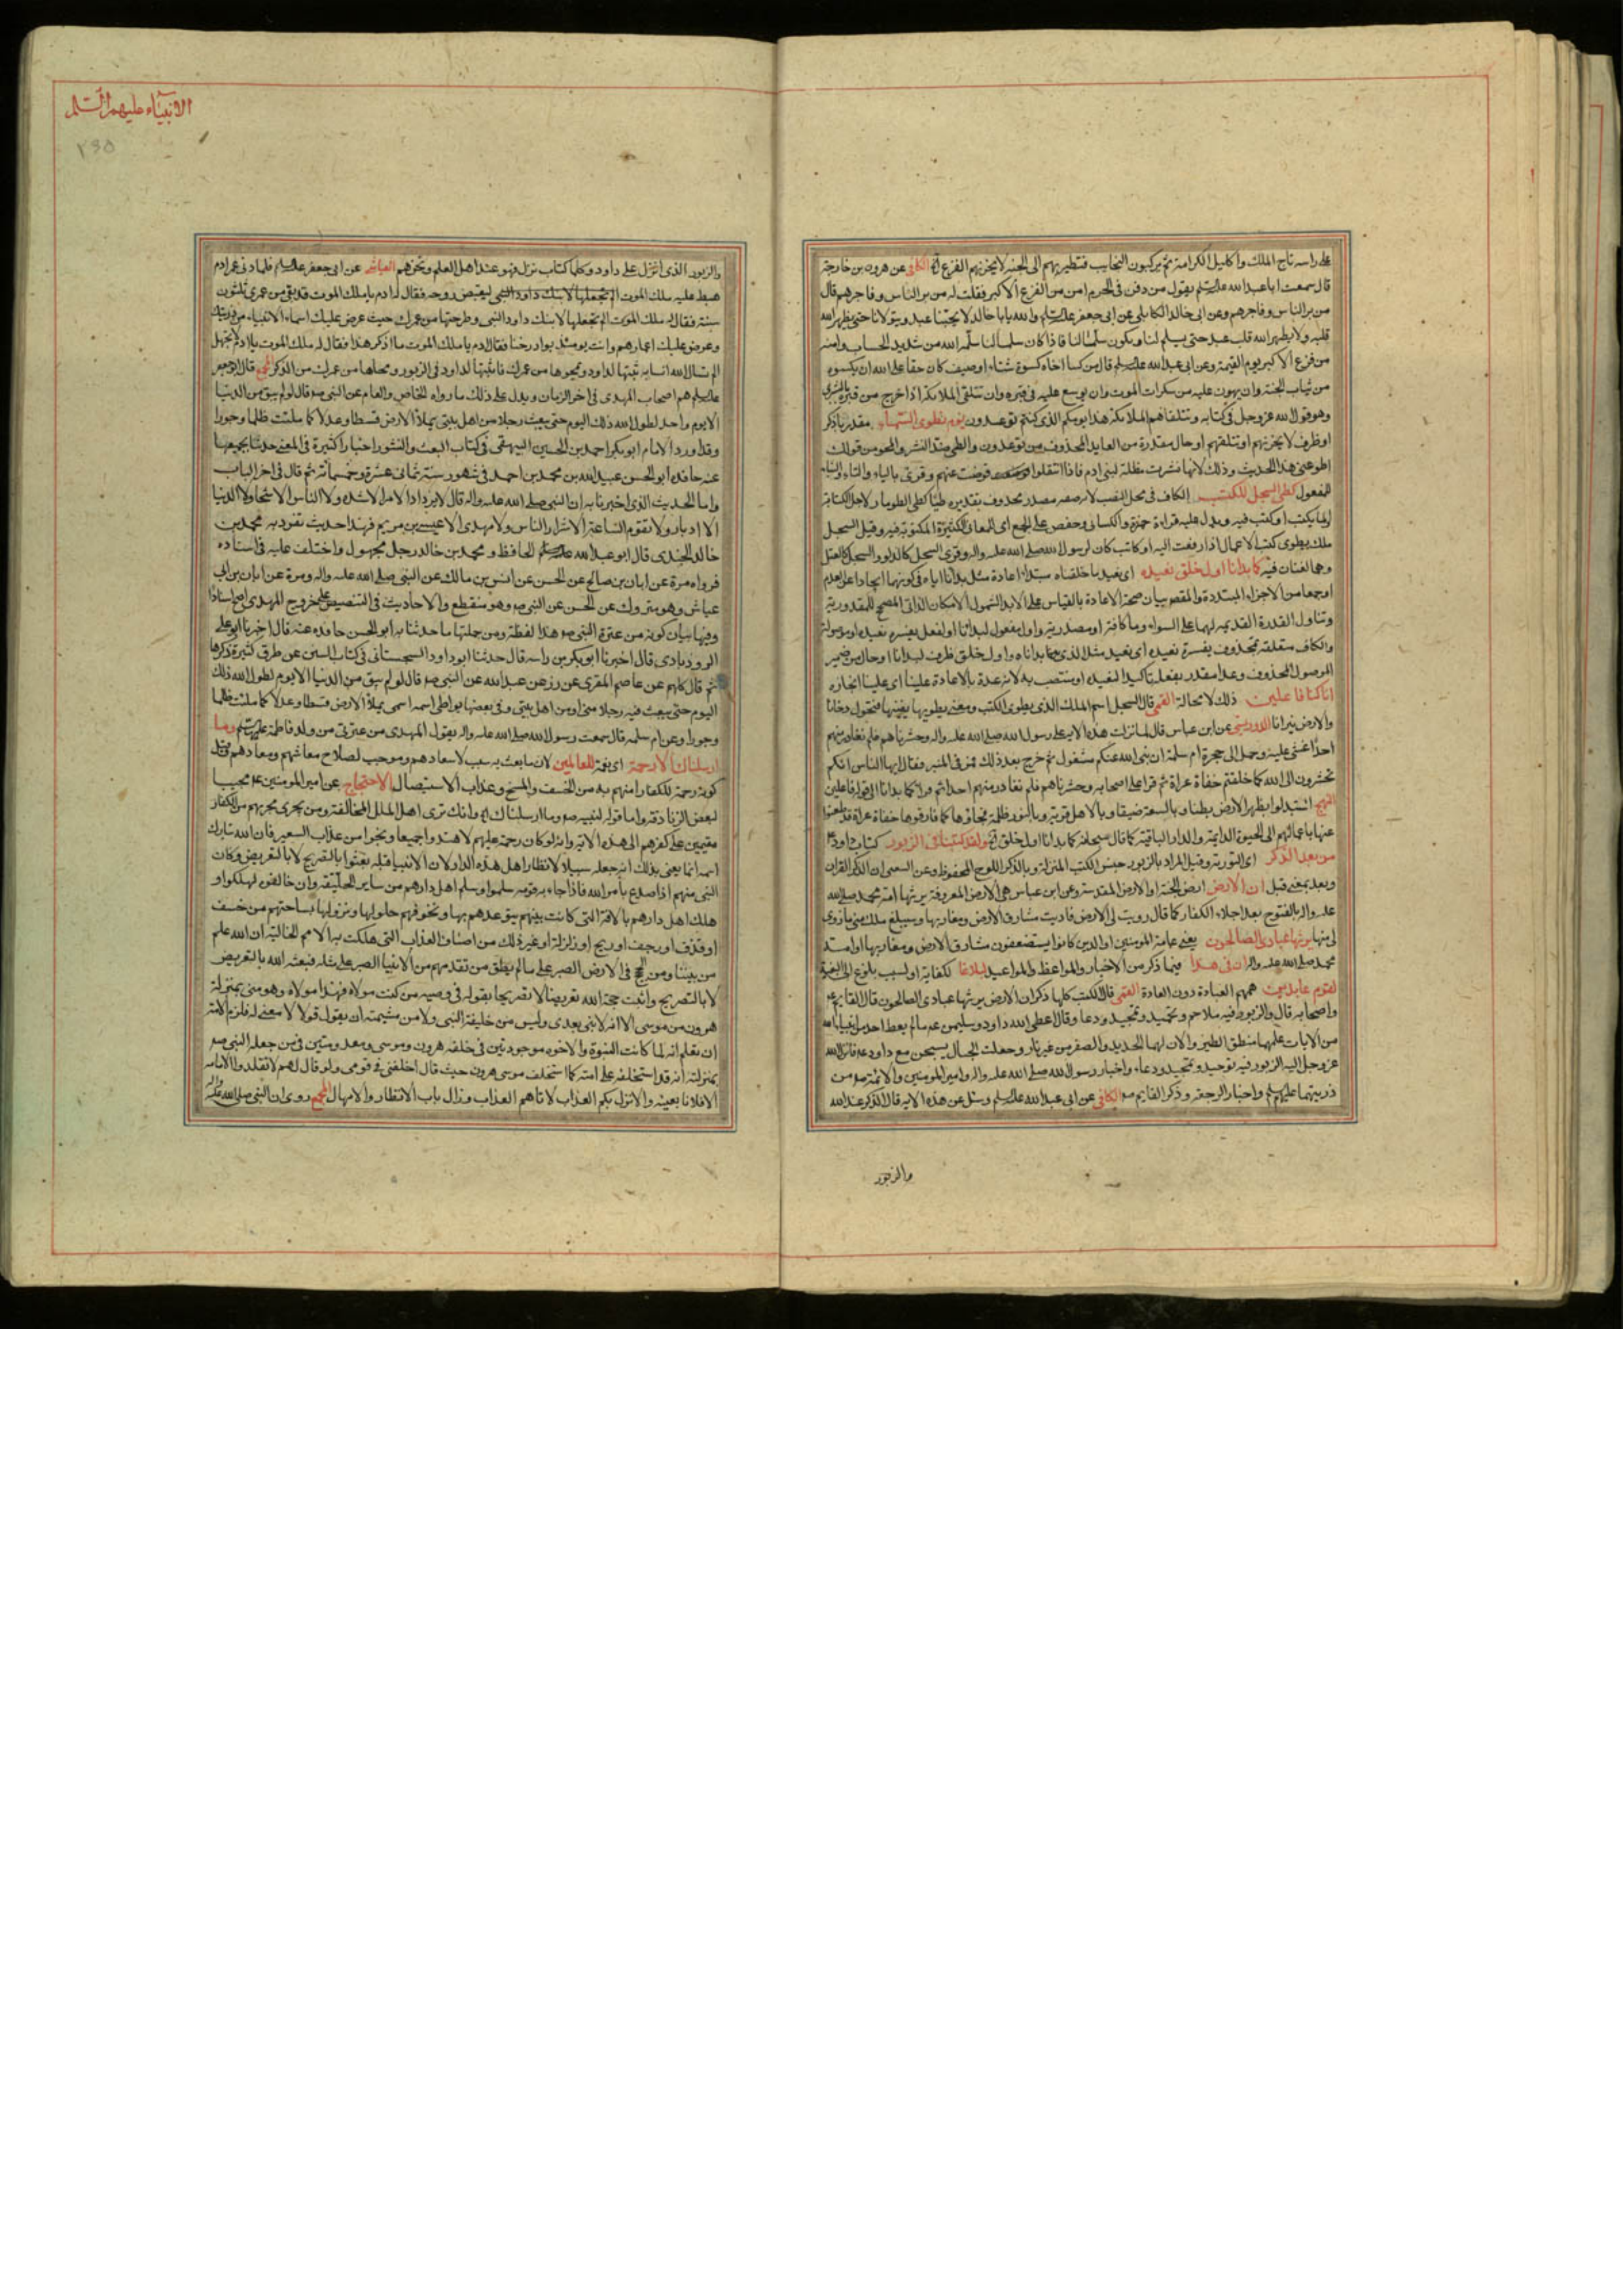 على راسه تاج الملك واكاليل الكرامة ثم يركبون النجايب فتطير بهم الى الجنة لا يحزنهم الفزع الكافى عن هرون بن خارجة
قال سمعت ابا عبد الله يقول من دفن فى الحرم امن من الفزع الاكبر فقلت له من بر الناس وفاجرهم قال
من بر الناس وفاجرهم وعن ابى خالد الكابلى عن ابى جعفر والله يابا خالد لا يحبنا عبد ويتولانا حتى يطهر الله
قلبه ولا يطهر الله قلب عبد حتى يسلم لنا ويكون سلما لنا فاذا كان سلما لنا سلمه الله من شديد الحساب وامنه
من فزع الاكبر يوم القيمة وعن ابى عبد الله قال من كسا اخاه كسوة شتاء او صيف كان حقا على الله ان يكسوه
من ثياب الجنة وان يهون عليه من سكرات الموت وان يوسع عليه فى قبره وان تتلقى الملائكة اذا خرج من قبره بالبشرى
وهو قول الله عز وجل فى كتابه وتتلقاهم الملائكة هذا يومكم الذى كنتم توعدون يوم نطوى السماء مقدر باذكر
او ظرف لا يحزنهم او تتلقيهم او حال مقدرة من العايد المحذوف من توعدون والطى ضد النشر والمحو من قولك
اطو عنى هذا الحديث وذلك لانها نشرت مظلة لبنى ادم فاذا انتقلوا قوضت عنهم وقرئ بالياء والتاء والبناء
للمفعول كطى السجل للكتب الكاف فى محل النصب لانه صفة مصدر محذوف تقديره طيا كطى الطومار لاجل الكتابة
او لما يكتب او كتب فيه ويدل عليه قراءة حمزة والكسائى وحفص على الجمع اى المعانى الكثيرة المكتوبة فيه وقيل السجل
ملك يطوى كتب الاعمال اذا رفعت اليه او كاتب كان لرسول الله صلى الله عليه واله وقرئ السجل كالدلو والسجل كالعتل
وهما لغتان فيه كما بدانا اول خلق نعيده اى نعيد ما خلقناه مبتدا اعادة مثل بدانا اياه فى كونهما ايجادا عن العدم
او جمعا من الاجزاء المبتددة والمقصود بيان صحة الاعادة بالقياس على الابداء لشمول الامكان الذاتى المصحح للمقدورية
وتناول القدرة القديمة لهما على السواء وما كافة او مصدرية واول مفعول لبدانا او لفعل يفسره نعيده او موصولة
والكاف متعلقة بمحذوف يفسره نعيده اى نعيد مثل الذى بداناه واول خلق ظرف لبدانا او حال من ضمير
الموصول المحذوف وعدا مقدر بفعله تاكيدا لنعيده او منتصب به لانه عدة بالاعادة علينا اى علينا انجازه
انا كنا فاعلين ذلك لا محالة القمى قال السجل اسم الملك الذى يطوى الكتب ومعنى يطويها يفنيها فتحول دخانا
والارض نيرانا عن ابن عباس قال لما نزلت هذه الاية على رسول الله صلى الله عليه واله
احدا غشى عليه وحمل الى حجرة ام سلمة ثم خرج بعد ذلك فقال ايها الناس انكم
تحشرون الى الله كما خلقتم حفاة عراة ثم قرا على اصحابه وحشرناهم فلم نغادر منهم احدا ثم قرا كما بدانا الى قوله فاعلين
النهج استبدلوا بظهر الارض بطنا وبالسعة ضيقا وبالاهل غربة وبالنور ظلمة فجاؤها كما فارقوها حفاة عراة قد ظعنوا
عنها باعمالهم الى الحيوة الدايمة والدار الباقية كما قال سبحانه كما بدانا اول خلق ولقد كتبنا فى الزبور كتاب داود
من بعد الذكر اى التورية وقيل المراد بالزبور جنس الكتب المنزلة وبالذكر اللوح المحفوظ وعن الشعبى ان الذكر القران
وبعد بمعنى قبل ان الارض ارض الجنة او الارض المقدسة وعن ابن عباس هى الارض المعروفة يرثها امة محمد صلى الله
عليه واله بالفتوح بعد اجلاء الكفار كما قال زويت لى الارض فاريت مشارق الارض ومغاربها وسيبلغ ملك امتى ما زوى
لى منها يرثها عبادى الصالحون يعنى عامة المؤمنين او الذين كانوا يستضعفون مشارق الارض ومغاربها او امة
محمد صلى الله عليه واله ان فى هذا فيما ذكر من الاخبار والمواعظ والمواعيد لبلاغا لكفاية او لسبب بلوغ الى البغية
لقوم عابدين همهم العبادة دون العادة القمى قال الكتب كلها ذكر ان الارض يرثها عبادى الصالحون قال القايم
واصحابه قال والزبور فيه ملاحم وتحميد وتمجيد ودعا وقال اعطى الله داود وسليمن ما لم يعط احد من انبياء الله
من الايات علمهما منطق الطير والان لهما الحديد والصفر من غير نار وجعلت الجبال يسبحن مع داود وانزل الله
عز وجل اليه الزبور فيه توحيد وتمجيد ودعاء واخبار رسول الله صلى الله عليه واله وامير المؤمنين والائمة من
ذريتهما واخبار الرجعة وذكر القايم الكافى عن ابى عبد الله وسئل عن هذه الاية قال الذكر عند الله
والزبور
الانبياء عليهم السلم
والزبور الذى انزل على داود وكل كتاب نزل فهو عند اهل العلم ونحن هم العياشى عن ابى جعفر فلما دنى عمر ادم
هبط عليه ملك الموت ليقبض روحه فقال له ادم يا ملك الموت قد بقى من عمرى ثلثون
سنة فقال له ملك الموت الم تجعلها لابنك داود النبى وطرحتها من عمرك حيث عرض عليك اسماء الانبياء من ذريتك
وعرض عليك اعمارهم وانت يومئذ بوادى دخنا فقال ادم يا ملك الموت ما اذكر هذا فقال له ملك الموت يا ادم لا تجهل
الم تسال الله ان يثبتها لداود ويمحوها من عمرك فاثبتها لداود فى الزبور ومحاها من عمرك من الذكر قال ابو جعفر
هم اصحاب المهدى فى اخر الزمان ويدل على ذلك ما رواه الخاص والعام عن النبى قال لو لم يبق من الدنيا
الا يوم واحد لطول الله ذلك اليوم حتى يبعث رجلا من اهل بيتى يملأ الارض قسطا وعدلا كما ملئت ظلما وجورا
وقد اورد الامام ابو بكر احمد بن الحسين البيهقى فى كتاب البعث والنشور اخبارا كثيرة فى المعنى حدثنا بجميعها
عنه حافده ابو الحسن عبيد الله بن محمد بن احمد فى شهور سنة ثمانى عشرة وخمسمائة ثم قال فى اخر الباب
واما الحديث الذى اخبرنا به ان النبى صلى الله عليه واله قال لا يزداد الامر الا شدة ولا الناس الا شحا ولا الدنيا
الا ادبارا ولا تقوم الساعة الا على اشرار الناس ولا مهدى الا عيسى بن مريم فهذا حديث تفرد به محمد بن
خالد الجندى قال ابو عبد الله الحافظ ومحمد بن خالد رجل مجهول واختلف عليه فى اسناده
فرواه مرة عن ابان بن صالح عن الحسن عن انس بن مالك عن النبى صلى الله عليه واله ومرة عن ابان بن ابى
عياش وهو متروك عن الحسن عن النبى وهو منقطع والاحاديث فى التنصيص على خروج المهدى اصح اسنادا
وفيها بيان كونه من عترة النبى هذا لفظه ومن جملتها ما حدثنا به ابو الحسن حافده عنه قال اخبرنا ابو على
الروذبادى قال اخبرنا ابو بكر بن داسه قال حدثنا ابو داود السجستانى فى كتاب السنن عن طرق كثيرة ذكرها
ثم قال كلهم عن عاصم المقرى عن زر عن عبد الله عن النبى قال لو لم يبق من الدنيا الا يوم لطول الله ذلك
اليوم حتى يبعث فيه رجلا منى او من اهل بيتى وفى بعضها يواطئ اسمه اسمى يملأ الارض قسطا وعدلا كما ملئت ظلما
وجورا وعن ام سلمه قال سمعت رسول الله صلى الله عليه واله يقول المهدى من عترتى من ولد فاطمة وما
ارسلناك الا رحمة اى نعمة للعالمين لان ما بعثت به سبب لاسعادهم وموجب لصلاح معاشهم ومعادهم وقيل
كونه رحمة للكفار امنهم به من الخسف والمسخ وعذاب الاستيصال الاحتجاج عن امير المؤمنين مجيبا
لبعض الزنادقة واما قوله لنبيه وما ارسلناك وانك ترى اهل الملل المخالفة ومن يجرى مجريهم من الكفار
مقيمين على كفرهم الى هذه الاية وانه لو كان رحمة عليهم لاهتدوا جميعا ونجوا من عذاب السعير فان الله تبارك
اسمه انما يعنى بذلك انه جعله سبيلا لانظار اهل هذه الدار لان الانبياء قبله بعثوا بالتصريح لا بالتعريض وكان
النبى منهم اذا صدع بامر الله فاذا جاءه قومه سلموا وسلم اهل دارهم من ساير الخليقة وان خالفوه هلكوا و
هلك اهل دارهم بالافة التى كانت بينهم يتوعدهم بها ويخوفهم حلولها ونزولها بساحتهم من خسف
او قذف او رجف او ريح او زلزلة او غير ذلك من اصناف العذاب التى هلكت به الامم الخالية ان الله علم
من نبينا ومن الحجج فى الارض الصبر على ما لم يطق من تقدمهم من الانبيا الصبر على مثله فبعثه الله بالتعريض
لا بالتصريح واثبت حجة الله تعريضا لا تصريحا بقوله فى وصيه من كنت مولاه فهذا مولاه وهو منى بمنزلة
هرون من موسى الا انه لا نبى بعدى وليس من خليقة النبى ولا من شيمته ان يقول قولا لا معنى له فلزم الامة
ان تعلم انه لما كانت النبوة والاخوة موجودتين فى خلقة هرون وموسى ومعدومتين فى من جعله النبى
بمنزلته انه قد استخلفه على امته كما استخلف موسى هرون حيث قال اخلفنى فى قومى ولو قال لهم لا تقلدوا الامامة
الا فلانا بعينه والا نزل بكم العذاب لاتاهم العذاب وزال باب الانظار والامهال المجمع روى ان النبى صلى الله عليه